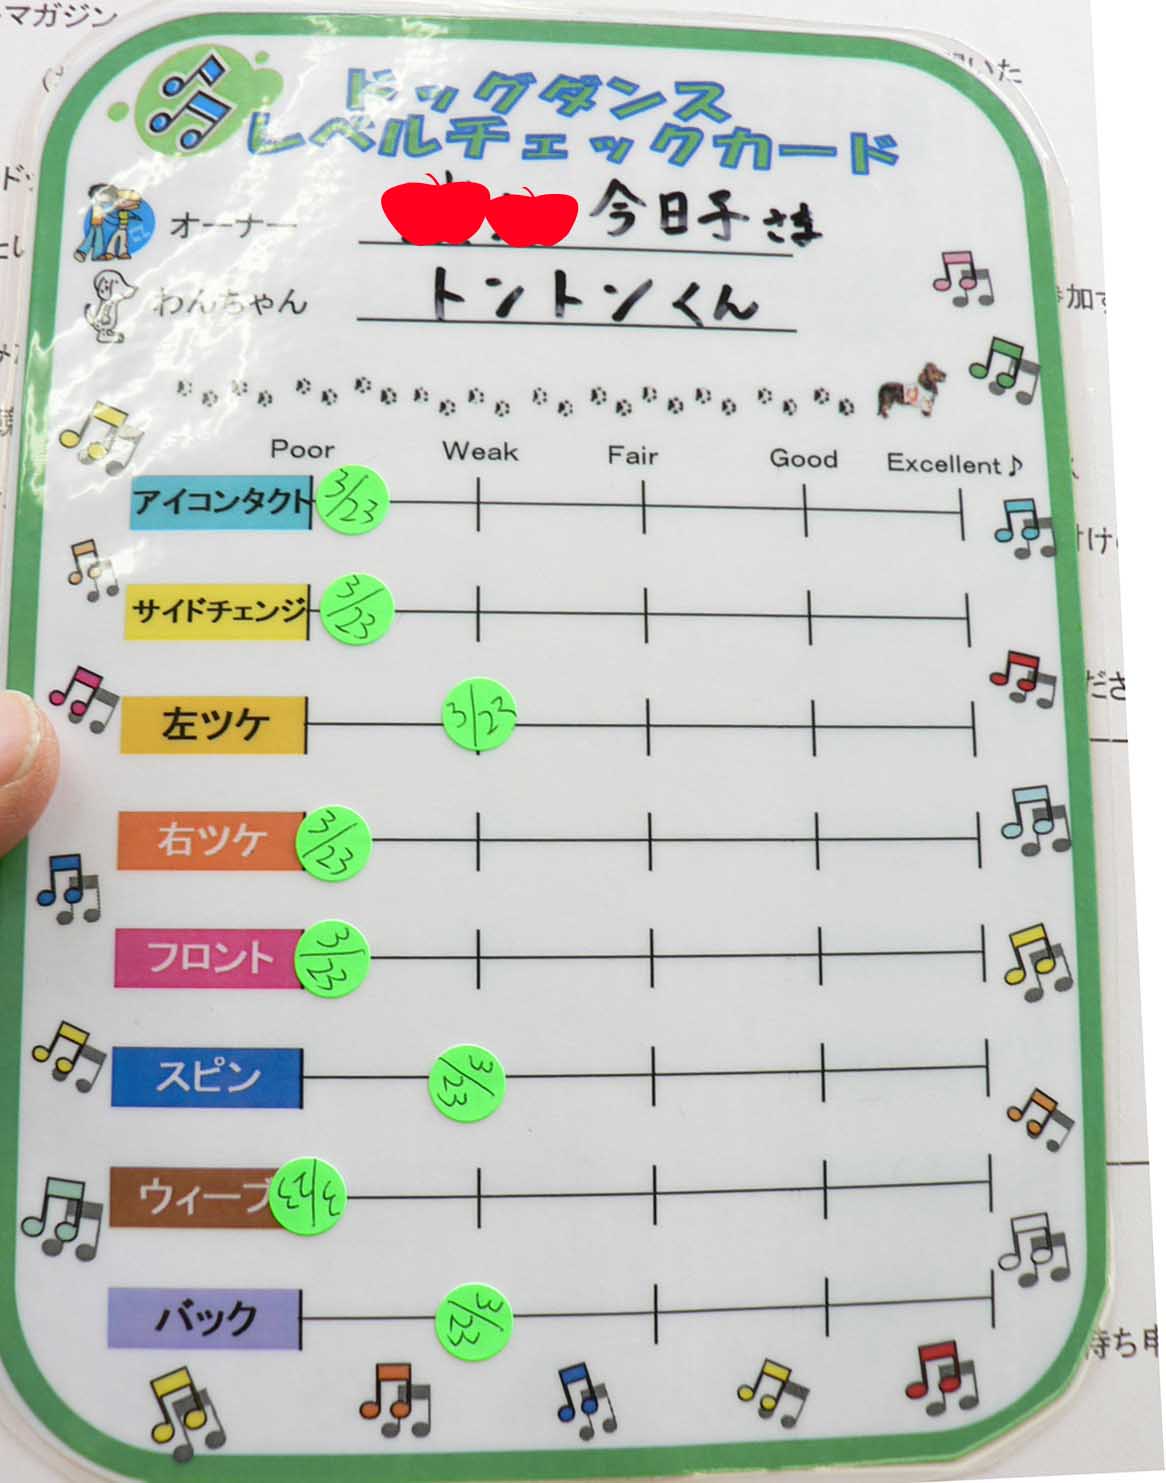 マガジン
いた
ドッグダンス
レベルチェックカード
オーナー 今日子さま
わんちゃん トントンくん
加す
Poor Weak Fair Good Excellent♪
アイコンタクト 3/23
サイドチェンジ 3/23
左ツケ 3/23
ださ
右ツケ 3/23
フロント 3/23
スピン 3/23
ウィーブ 3/23
バック 3/23
待ち申